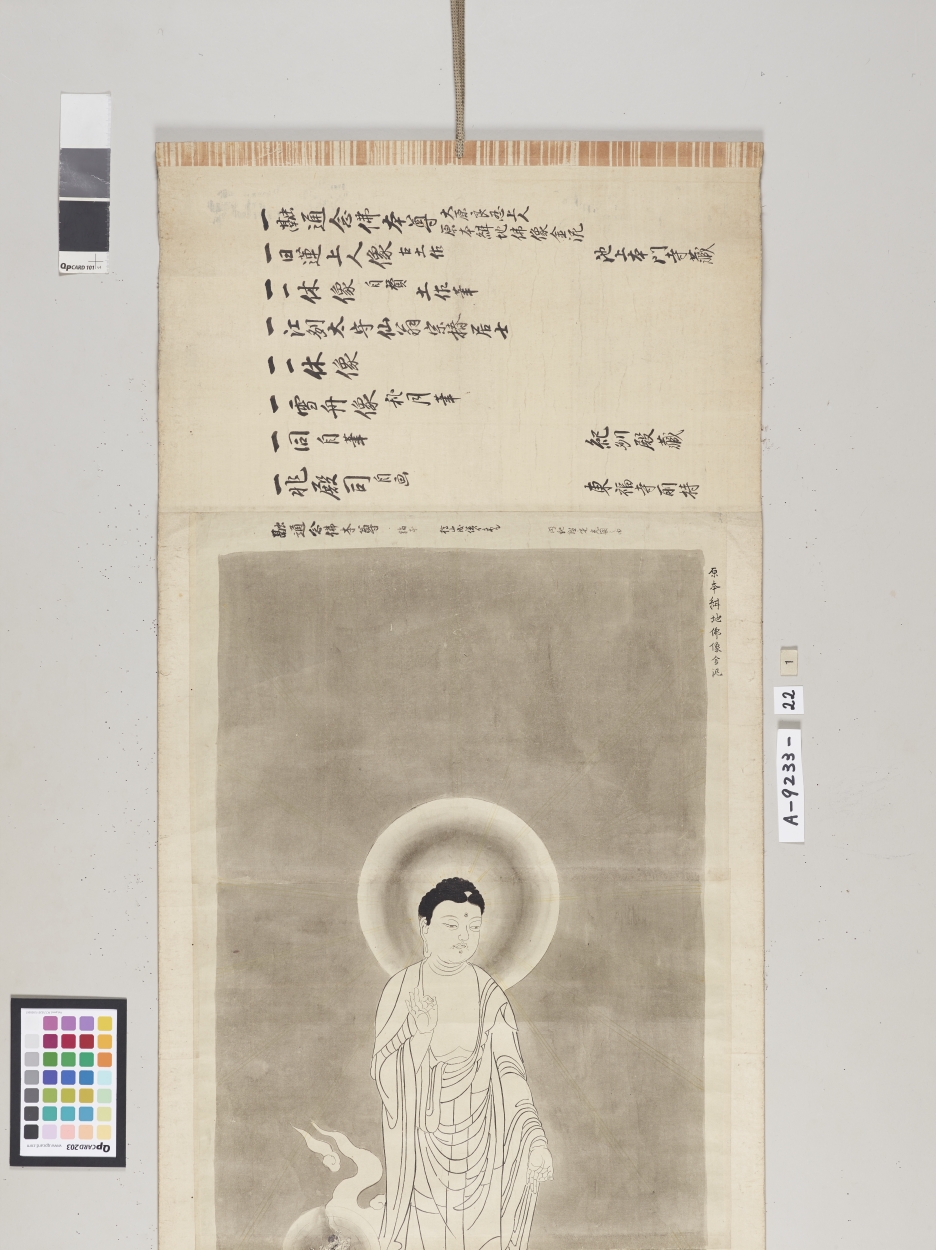 一融通念佛本尊 大原良忍上人
原本紺地佛像金泥
一日蓮上人像 古土佐 池上本門寺藏
一一休像 自賛 土佐筆
一江刕太守仙翁宗椿居士
一一休像
一雪舟像 秋月筆
一同 自筆 紀州殿藏
一兆殿司 自画 東福寺所持
融通念佛本尊
原本紺地佛像金泥
1
22
A-9233-
QPCARD 101
QPCARD 203